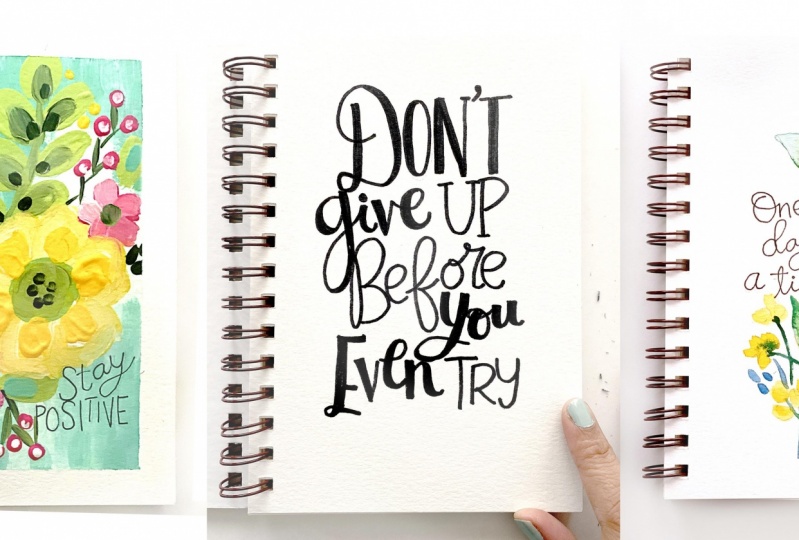 Stay
POSITIVE
DON'T
give UP
Before
you
Even TRY
One
a